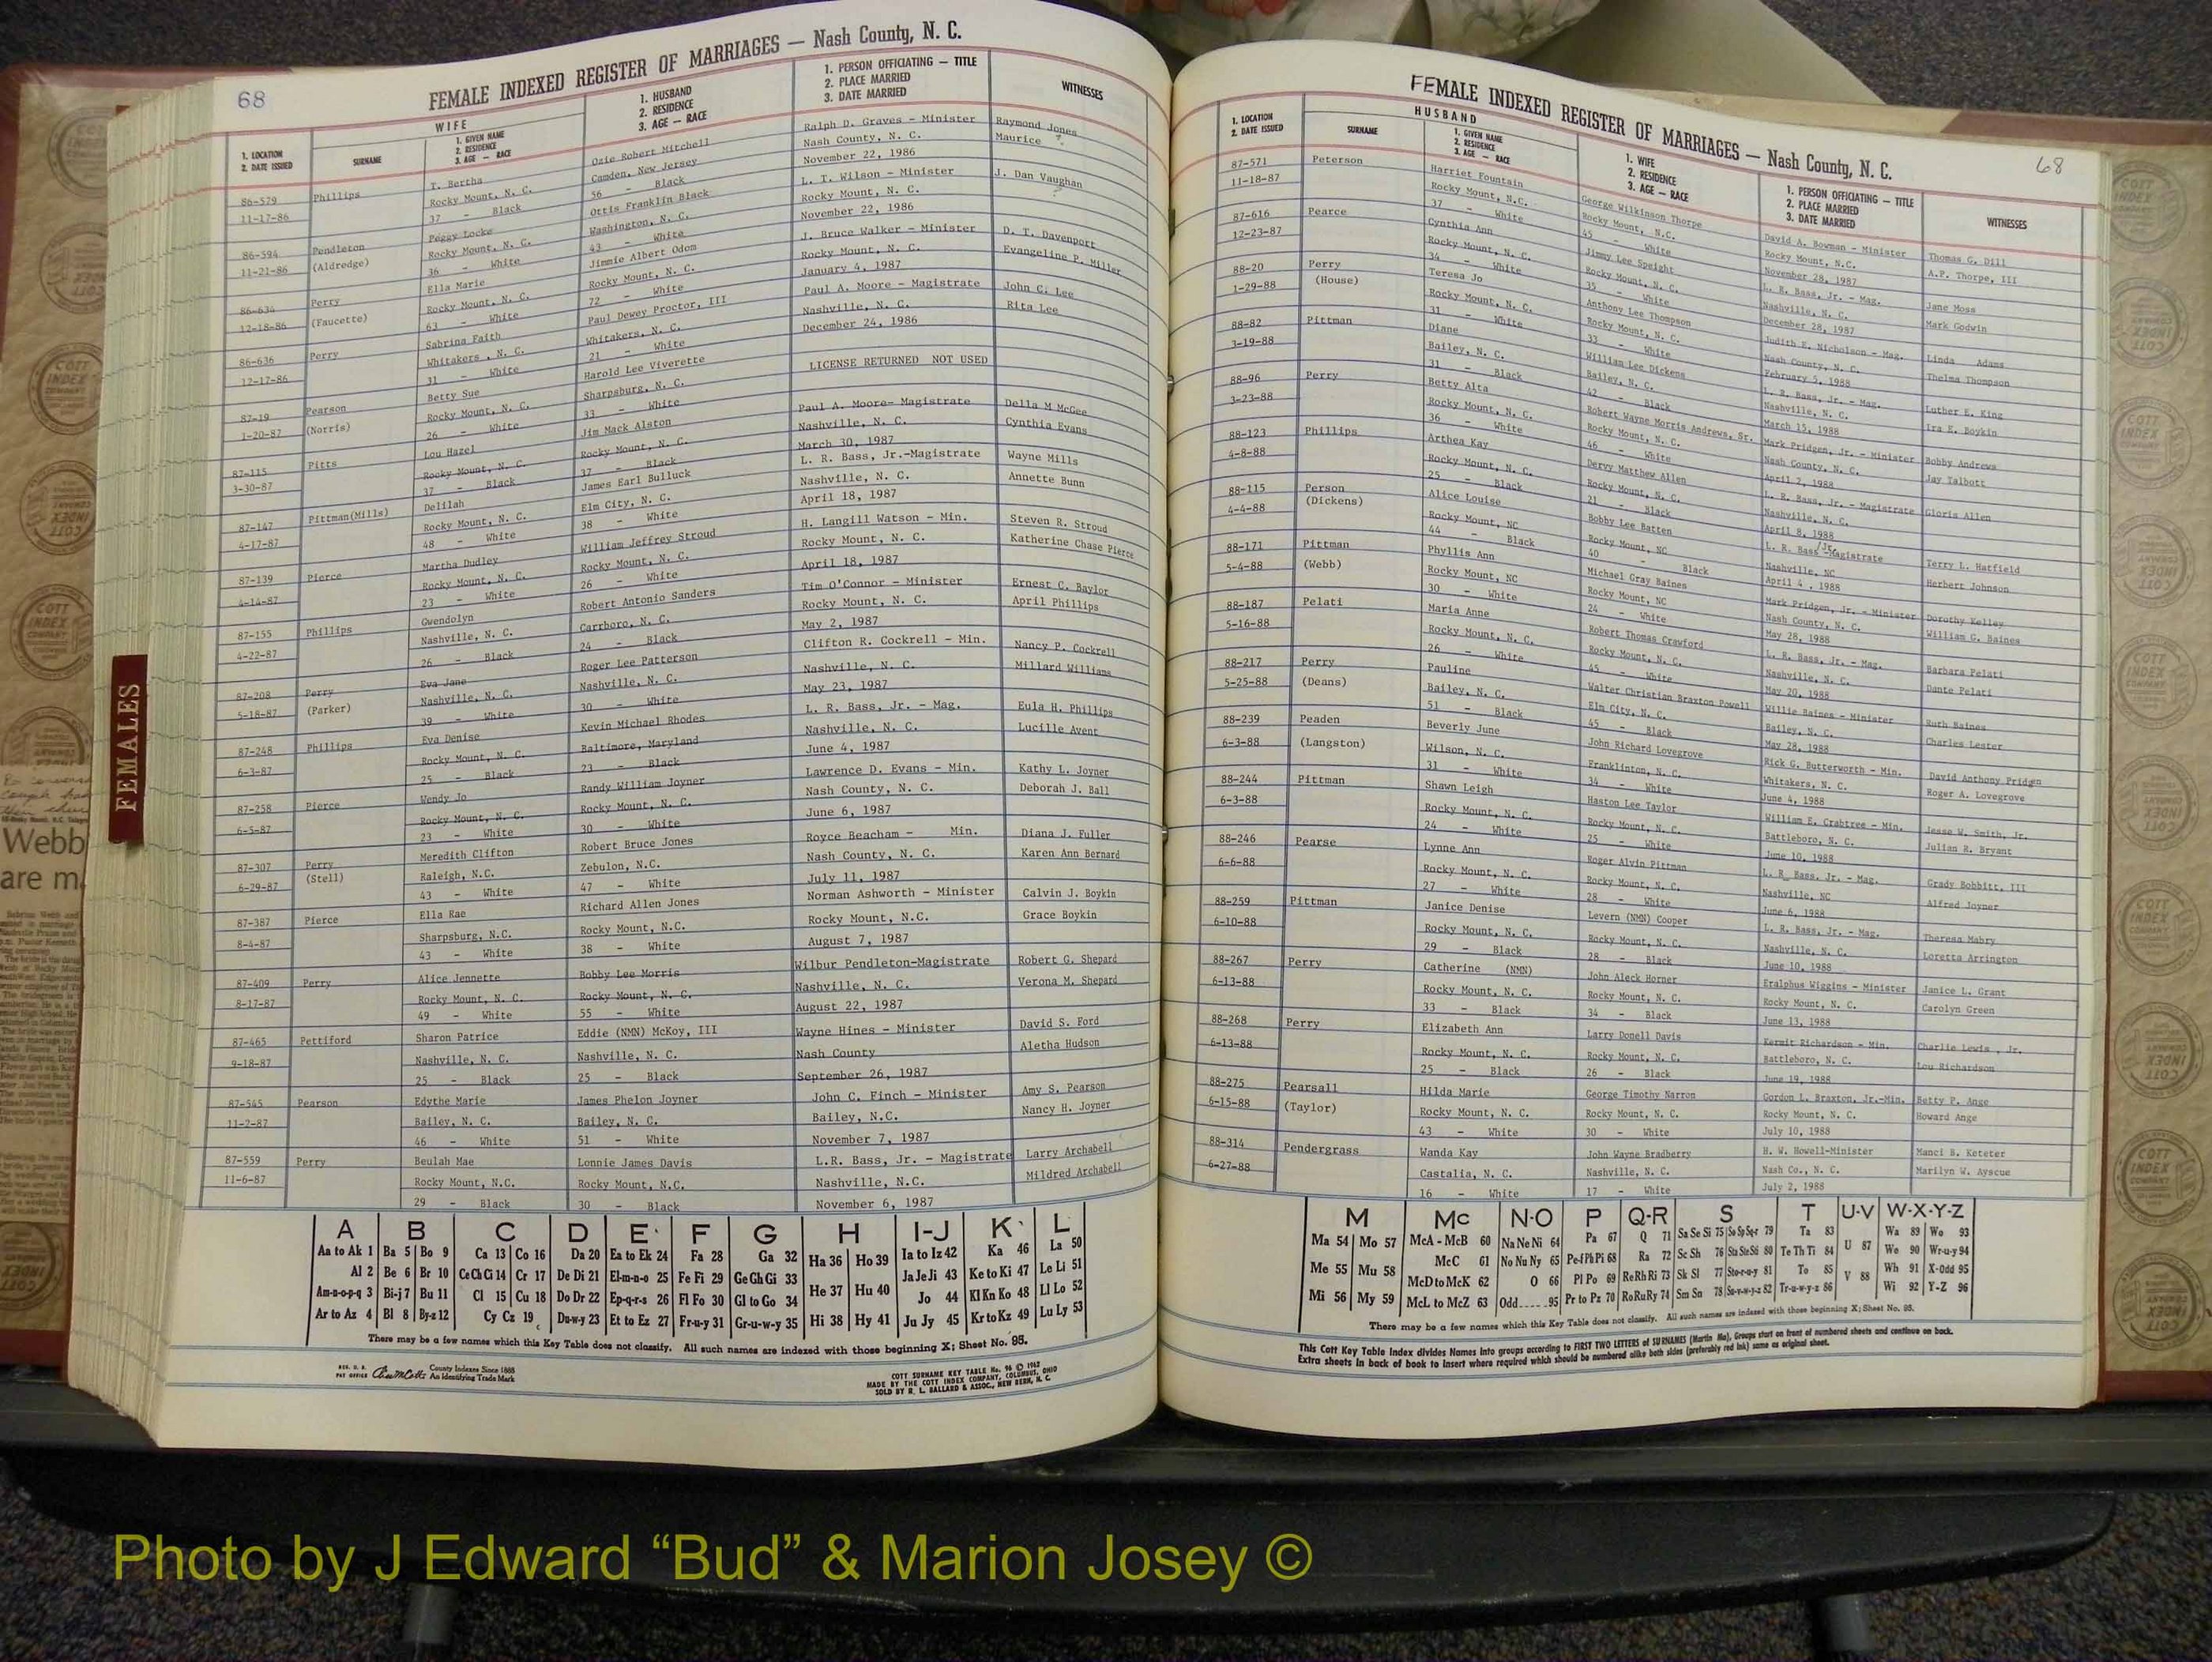 68
FEMALE INDEXED REGISTER OF MARRIAGES — Nash County, N. C.
1. LOCATION
2. DATE ISSUED
WIFE
SURNAME
1. GIVEN NAME
2. RESIDENCE
3. AGE — RACE
1. HUSBAND
2. RESIDENCE
3. AGE — RACE
1. PERSON OFFICIATING — TITLE
2. PLACE MARRIED
3. DATE MARRIED
WITNESSES
86-529 Phillips T. Bertha Ozie Robert Mitchell Ralph D. Graves - Minister Raymond Jones
11-17-86 Rocky Mount, N. C. Camden, New Jersey Nash County, N. C. Maurice ?
37 - Black 56 - Black November 22, 1986
86-594 Pendleton Peggy Locke Ottis Franklin Black L. T. Wilson - Minister J. Dan Vaughan
11-21-86 (Aldredge) Rocky Mount, N. C. Washington, N. C. Rocky Mount, N. C. ?
36 - White 43 - White November 22, 1986
86-634 Perry Ella Marie Jimmie Albert Odom J. Bruce Walker - Minister D. T. Davenport
12-18-86 (Faucette) Rocky Mount, N. C. Rocky Mount, N. C. Rocky Mount, N. C. Evangeline P. Miller
63 - White 72 - White January 4, 1987
86-636 Perry Sabrina Faith Paul Dewey Proctor, III Paul A. Moore - Magistrate John C. Lee
12-17-86 Whitakers, N. C. Whitakers, N. C. Nashville, N. C. Rita Lee
31 - White 21 - White December 24, 1986
87-19 Pearson Betty Sue Harold Lee Viverette LICENSE RETURNED NOT USED
1-20-87 (Norris) Rocky Mount, N. C. Sharpsburg, N. C.
26 - White 33 - White
87-115 Pitts Lou Hazel Jim Mack Alston Paul A. Moore- Magistrate Della M McGee
3-30-87 Rocky Mount, N. C. Rocky Mount, N. C. Nashville, N. C. Cynthia Evans
37 - Black 37 - Black March 30, 1987
87-147 Pittman(Mills) Delilah James Earl Bulluck L. R. Bass, Jr.-Magistrate Wayne Mills
4-17-87 Rocky Mount, N. C. Elm City, N. C. Nashville, N. C. Annette Bunn
48 - White 38 - White April 18, 1987
87-139 Pierce Martha Dudley William Jeffrey Stroud H. Langill Watson - Min. Steven R. Stroud
4-14-87 Rocky Mount, N. C. Rocky Mount, N. C. Rocky Mount, N. C. Katherine Chase Pierce
23 - White 26 - White April 18, 1987
87-155 Phillips Gwendolyn Robert Antonio Sanders Tim O'Connor - Minister Ernest C. Baylor
4-22-87 Nashville, N. C. Carrboro, N. C. Rocky Mount, N. C. April Phillips
26 - Black 24 - Black May 2, 1987
87-208 Perry Eva Jane Roger Lee Patterson Clifton R. Cockrell - Min. Nancy P. Cockrell
5-18-87 (Parker) Nashville, N. C. Nashville, N. C. Nashville, N. C. Millard Williams
39 - White 30 - White May 23, 1987
87-248 Phillips Eva Denise Kevin Michael Rhodes L. R. Bass, Jr. - Mag. Eula H. Phillips
6-3-87 Rocky Mount, N. C. Baltimore, Maryland Nashville, N. C. Lucille Avent
25 - Black 23 - Black June 4, 1987
87-258 Pierce Wendy Jo Randy William Joyner Lawrence D. Evans - Min. Kathy L. Joyner
6-5-87 Rocky Mount, N. C. Rocky Mount, N. C. Nash County, N. C. Deborah J. Ball
23 - White 30 - White June 6, 1987
87-307 Perry Meredith Clifton Robert Bruce Jones Royce Beacham - Min. Diana J. Fuller
6-29-87 (Stell) Raleigh, N.C. Zebulon, N.C. Nash County, N. C. Karen Ann Bernard
43 - White 47 - White July 11, 1987
87-387 Pierce Ella Rae Richard Allen Jones Norman Ashworth - Minister Calvin J. Boykin
8-4-87 Sharpsburg, N.C. Rocky Mount, N.C. Rocky Mount, N.C. Grace Boykin
43 - White 38 - White August 7, 1987
87-409 Perry Alice Jennette Bobby Lee Morris Wilbur Pendleton-Magistrate Robert G. Shepard
8-17-87 Rocky Mount, N. C. Rocky Mount, N. C. Nashville, N. C. Verona M. Shepard
49 - White 55 - White August 22, 1987
87-465 Pettiford Sharon Patrice Eddie (NMN) McKoy, III Wayne Hines - Minister David S. Ford
9-18-87 Nashville, N. C. Nashville, N. C. Nash County Aletha Hudson
25 - Black 25 - Black September 26, 1987
87-545 Pearson Edythe Marie James Phelon Joyner John C. Finch - Minister Amy S. Pearson
11-2-87 Bailey, N.C. Bailey, N.C. Bailey, N.C. Nancy H. Joyner
46 - White 51 - White November 7, 1987
87-559 Perry Beulah Mae Lonnie James Davis L.R. Bass, Jr. - Magistrate Larry Archabell
11-6-87 Rocky Mount, N.C. Rocky Mount, N.C. Nashville, N.C. Mildred Archabell
29 - Black 30 - Black November 6, 1987
A B C D E F G H I-J K L
Aa to Ak 1 Ba 5 Bo 9 Ca 13 Co 16 Da 20 Ea to Ek 24 Fa 28 Ga 32 Ha 36 Ho 39 Ia to Iz 42 Ka 46 La 50
Al 2 Be 6 Br 10 Ce Ch Ci 14 Cr 17 De Di 21 El-m-n-o 25 Fe Fi 29 Ge Gh Gi 33 He 37 Hu 40 Ja Je Ji 43 Ke to Ki 47 Le Li 51
Am-n-o-p-q 3 Bi-j 7 Bu 11 Cl 15 Cu 18 Do Dr 22 Ep-q-r-s 26 Fl Fo 30 Gl to Go 34 Jo 44 Kl Kn Ko 48 Ll Lo 52
Ar to Az 4 Bl 8 By-z 12 Cy Cz 19 Du-w-y 23 Et to Ez 27 Fr-u-y 31 Gr-u-w-y 35 Hi 38 Hy 41 Ju Jy 45 Kr to Kz 49 Lu Ly 53
There may be a few names which this Key Table does not classify. All such names are indexed with those beginning X; Sheet No. 95.
REG. U. S. PAT OFFICE
County Indexes Since 1888
An Identifying Trade Mark
COTT SURNAME KEY TABLE No. 96 © 1962
MADE BY THE COTT INDEX COMPANY, COLUMBUS, OHIO
SOLD BY R. L. BALLARD & ASSOC., NEW BERN, N. C.
FEMALES
Webb
are
FEMALE INDEXED REGISTER OF MARRIAGES — Nash County, N. C.
68
1. LOCATION
2. DATE ISSUED
HUSBAND
SURNAME
1. GIVEN NAME
2. RESIDENCE
3. AGE — RACE
1. WIFE
2. RESIDENCE
3. AGE — RACE
1. PERSON OFFICIATING — TITLE
2. PLACE MARRIED
3. DATE MARRIED
WITNESSES
87-571 Peterson Harriet Fountain George Wilkinson Thorpe David A. Bowman - Minister Thomas G. Dill
11-18-87 Rocky Mount, N.C. Rocky Mount, N.C. Rocky Mount, N.C. A.P. Thorpe, III
37 - White 45 - White November 28, 1987
87-616 Pearce Cynthia Ann Jimmy Lee Speight L. R. Bass, Jr. - Mag. Jane Moss
12-23-87 Rocky Mount, N. C. Rocky Mount, N. C. Nashville, N. C. Mark Godwin
34 - White 35 - White December 28, 1987
88-20 Perry Teresa Jo Anthony Lee Thompson Judith E. Nicholson - Mag. Linda Adams
1-29-88 (House) Rocky Mount, N. C. Rocky Mount, N. C. Nash County, N. C. Thelma Thompson
31 - White 33 - White February 5, 1988
88-82 Pittman Diane William Lee Dickens L. R. Bass, Jr. - Mag. Luther E. King
3-19-88 Bailey, N. C. Bailey, N. C. Nashville, N. C. Ira E. Boykin
31 - Black 42 - Black March 15, 1988
88-96 Perry Betty Alta Robert Wayne Morris Andrews, Sr. Mark Pridgen, Jr. - Minister Bobby Andrews
3-23-88 Rocky Mount, N. C. Rocky Mount, N. C. Nash County, N. C. Jay Talbott
36 - White 46 - White April 2, 1988
88-123 Phillips Arthea Kay Dervy Matthew Allen L. R. Bass, Jr. - Magistrate Gloris Allen
4-8-88 Rocky Mount, N. C. Rocky Mount, N. C. Nashville, N. C.
25 - Black 21 - Black April 8, 1988
88-115 Person Alice Louise Bobby Lee Batten L. R. Bass Jr. -Magistrate Terry L. Hatfield
4-4-88 (Dickens) Rocky Mount, NC Rocky Mount, NC Nashville, NC Herbert Johnson
44 - Black 40 - Black April 4, 1988
88-171 Pittman Phyllis Ann Michael Gray Baines Mark Pridgen, Jr. - Minister Dorothy Kelley
5-4-88 (Webb) Rocky Mount, NC Rocky Mount, NC Nash County, N. C. William G. Baines
30 - White 24 - White May 28, 1988
88-187 Pelati Maria Anne Robert Thomas Crawford L. R. Bass, Jr. - Mag. Barbara Pelati
5-16-88 Rocky Mount, N. C. Rocky Mount, N. C. Nashville, N. C. Dante Pelati
26 - White 45 - White May 20, 1988
88-217 Perry Pauline Walter Christian Braxton Powell Willie Baines - Minister Ruth Baines
5-25-88 (Deans) Bailey, N. C. Elm City, N. C. Bailey, N. C. Charles Lester
51 - Black 45 - Black May 28, 1988
88-239 Peaden Beverly June John Richard Lovegrove Rick G. Butterworth - Min. David Anthony Pridgen
6-3-88 (Langston) Wilson, N. C. Franklinton, N. C. Whitakers, N. C. Roger A. Lovegrove
31 - White 34 - White June 4, 1988
88-244 Pittman Shawn Leigh Haston Lee Taylor William E. Crabtree - Min. Jesse W. Smith, Jr.
6-3-88 Rocky Mount, N. C. Rocky Mount, N. C. Battleboro, N. C. Julian R. Bryant
24 - White 25 - White June 10, 1988
88-246 Pearse Lynne Ann Roger Alvin Pittman L. R. Bass, Jr. - Mag. Grady Bobbitt, III
6-6-88 Rocky Mount, N. C. Rocky Mount, N. C. Nashville, NC Alfred Joyner
27 - White 28 - White June 6, 1988
88-259 Pittman Janice Denise Levern (NMN) Cooper L. R. Bass, Jr. - Mag. Theresa Mabry
6-10-88 Rocky Mount, N. C. Rocky Mount, N. C. Nashville, N. C. Loretta Arrington
29 - Black 28 - Black June 10, 1988
88-267 Perry Catherine (NMN) John Aleck Horner Eralphus Wiggins - Minister Janice L. Grant
6-13-88 Rocky Mount, N. C. Rocky Mount, N. C. Rocky Mount, N. C. Carolyn Green
33 - Black 34 - Black June 13, 1988
88-268 Perry Elizabeth Ann Larry Donell Davis Kermit Richardson - Min. Charlie Lewis, Jr.
6-13-88 Rocky Mount, N. C. Rocky Mount, N. C. Battleboro, N. C. Lou Richardson
25 - Black 26 - Black June 19, 1988
88-275 Pearsall Hilda Marie George Timothy Narron Gordon L. Braxton, Jr.-Min. Betty P. Ange
6-15-88 (Taylor) Rocky Mount, N. C. Rocky Mount, N. C. Rocky Mount, N. C. Howard Ange
43 - White 30 - White July 10, 1988
88-314 Pendergrass Wanda Kay John Wayne Bradberry H. W. Howell-Minister Manci B. Keteter
6-27-88 Castalia, N. C. Nashville, N. C. Nash Co., N. C. Marilyn W. Ayscue
16 - White 17 - White July 2, 1988
M Mc N-O P Q-R S T U-V W-X-Y-Z
Ma 54 Mo 57 McA - McB 60 Na Ne Ni 64 Pa 67 Q 71 Sa Se Si 75 So Sp Sq-r 79 Ta 83 U 87 Wa 89 Wo 93
Me 55 Mu 58 McC 61 No Nu Ny 65 Pe-f Ph Pi 68 Ra 72 Sc Sh 76 Sta Ste Sti 80 Te Th Ti 84 We 90 Wr-u-y 94
McD to McK 62 O 66 Pl Po 69 Re Rh Ri 73 Sk Sl 77 Sto-r-u-y 81 To 85 V 88 Wh 91 X-Odd 95
Mi 56 My 59 McL to McZ 63 Odd 95 Pr to Pz 70 Ro Ru Ry 74 Sm Sn 78 Su-v-w-y-z 82 Tr-u-w-y-z 86 Wi 92 Y-Z 96
There may be a few names which this Key Table does not classify. All such names are indexed with those beginning X; Sheet No. 95.
This Cott Key Table Index divides Names into groups according to FIRST TWO LETTERS of SURNAMES (Martin Ma), Groups start on front of numbered sheets and continue on back.
Extra sheets in back of book to insert where required which should be numbered alike both sides (preferably red ink) same as original sheet.
Photo by J Edward “Bud” & Marion Josey ©